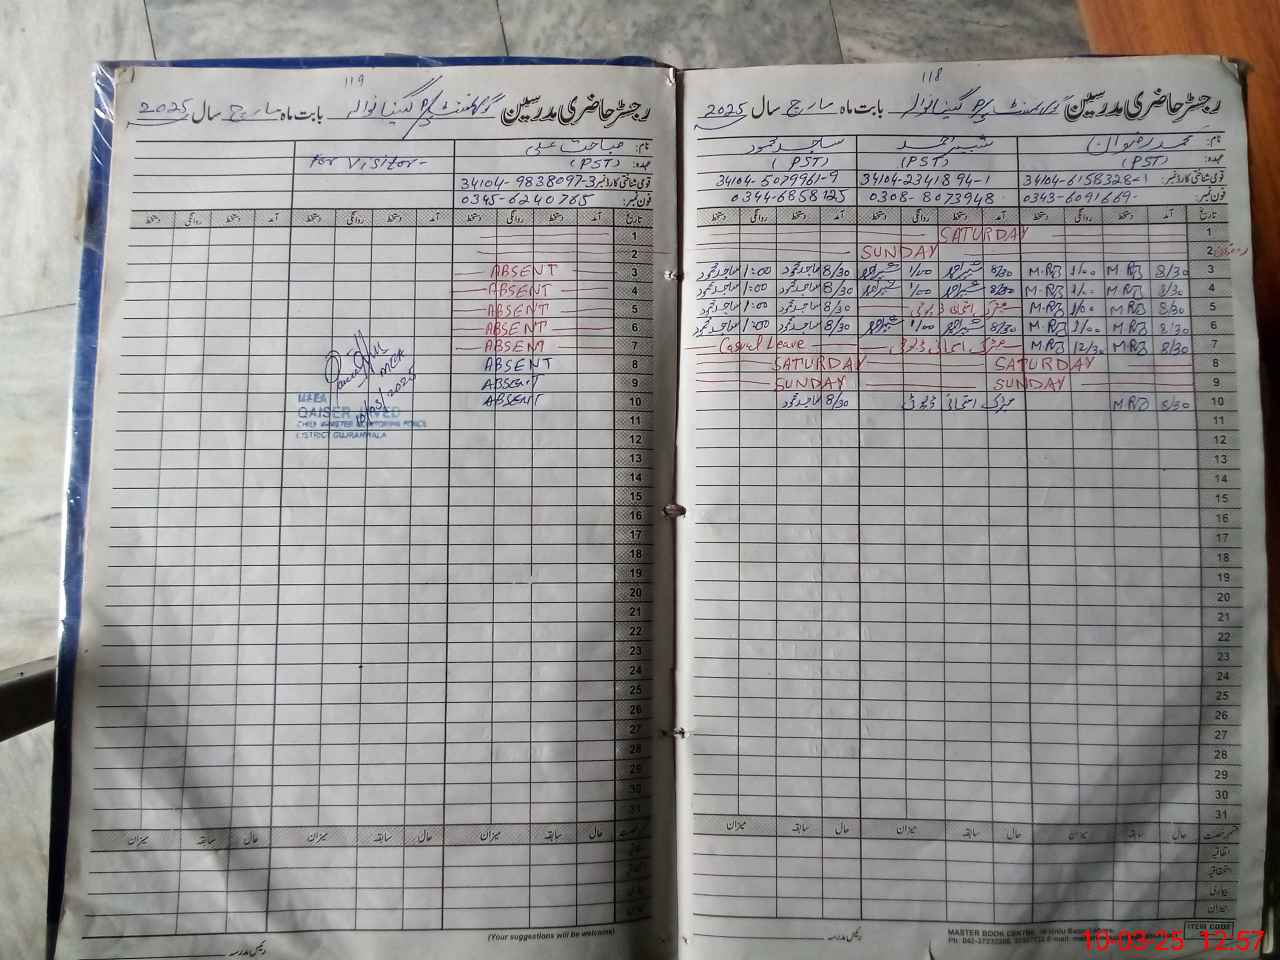 118
رجسٹر حاضری مدرسین گورنمنٹ P/S نگینانوالہ بابت ماہ مارچ سال 2025
نام: محمد رضوان شبیر احمد ساجد محمود
عہدہ: (PST) (PST) (PST)
قومی شناختی کارڈ نمبر: 34104-6158328-1 34104-2341894-1 34104-5079961-9
فون نمبر: 0343-6091669 0308-8073948 0344-6858125
تاریخ آمد دستخط روانگی دستخط آمد دستخط روانگی دستخط آمد دستخط روانگی دستخط
1 SATURDAY
2 SUNDAY
3 8/30 MRB 1/00 M-RB 8/30 شبیر احمد 1/00 شبیر احمد 8/30 ساجد محمود 1:00 ساجد محمود
4 8/30 MRB 1/00 M-RB 8/30 شبیر احمد 1/00 شبیر احمد 8/30 ساجد محمود 1:00 ساجد محمود
5 8/30 MRB 1/00 M-RB میٹرک امتحانی ڈیوٹی 8/30 ساجد محمود 1:00 ساجد محمود
6 8/30 MRB 1/00 M-RB 8/30 شبیر احمد 1/00 شبیر احمد 8/30 ساجد محمود 1:00 ساجد محمود
7 8/30 MRB 12/30 MRB میٹرک امتحانی ڈیوٹی Casual Leave
8 SATURDAY SATURDAY
9 SUNDAY SUNDAY
10 8/30 MRB میٹرک امتحانی ڈیوٹی 8/30 ساجد محمود
11
12
13
14
15
16
17
18
19
20
21
22
23
24
25
26
27
28
29
30
31
قسم رخصت حال سابقہ میزان حال سابقہ میزان حال سابقہ میزان
اتفاقیہ
استحقاقیہ
بیماری
میزان
رئیس مدرسہ
MASTER BOOK CENTRE
ITEM CODE
10-03-25 12:57
119
رجسٹر حاضری مدرسین گورنمنٹ P/S نگینانوالہ بابت ماہ مارچ سال 2025
نام: صباحت علی
عہدہ: (PST) For Visitor-
قومی شناختی کارڈ نمبر 34104-9838097-3
فون نمبر: 0345-6240765
تاریخ آمد دستخط روانگی دستخط آمد دستخط روانگی دستخط آمد دستخط روانگی دستخط
1
2
3 ABSENT
4 ABSENT
5 ABSENT
6 ABSENT
7 ABSENT
8 ABSENT
9 ABSENT
10 ABSENT
MCA
10/03/2025
M&EA
QAISER JAVED
CHIEF MINISTER MONITORING FORCE
DISTRICT GUJRANWALA
11
12
13
14
15
16
17
18
19
20
21
22
23
24
25
26
27
28
29
30
31
قسم رخصت حال سابقہ میزان حال سابقہ میزان حال سابقہ میزان
اتفاقیہ
استحقاقیہ
بیماری
میزان
(Your suggestions will be welcome)
رئیس مدرسہ